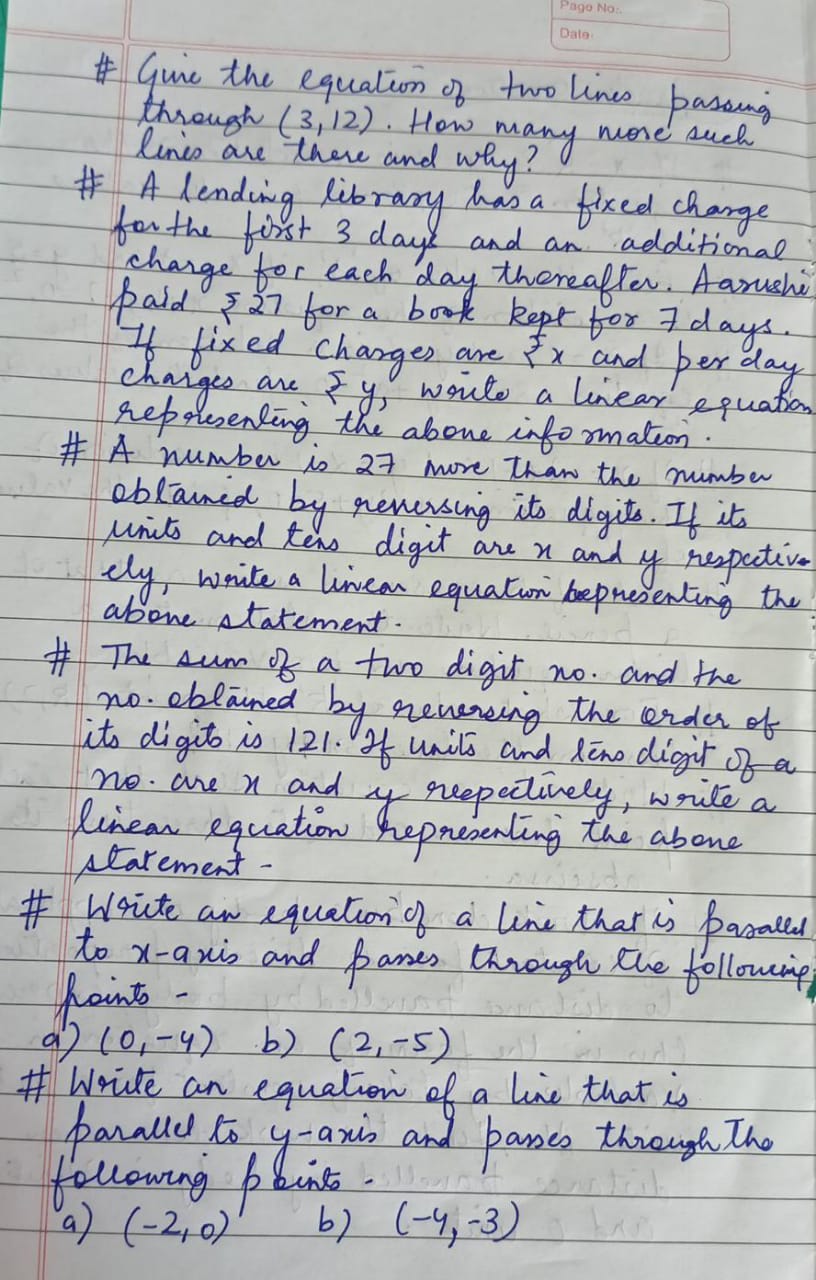 Page No:.
Date:
# Give the equation of two lines passing
through (3,12). How many more such
lines are there and why?
# A lending library has a fixed charge
for the first 3 days and an additional
charge for each day thereafter. Aarushi
paid ₹27 for a book kept for 7 days.
If fixed charges are ₹x and per day
charges are ₹y, write a linear equation
representing the above information.
# A number is 27 more than the number
obtained by reversing its digits. If its
units and tens digit are x and y respectiv-
ely, write a linear equation representing the
above statement.
# The sum of a two digit no. and the
no. obtained by reversing the order of
its digits is 121. If units and tens digit of a
no. are x and y respectively, write a
linear equation representing the above
statement -
# Write an equation of a line that is parallel
to x-axis and passes through the following
points -
a) (0,-4) b) (2,-5)
# Write an equation of a line that is
parallel to y-axis and passes through the
following points -
a) (-2,0) b) (-4,-3)